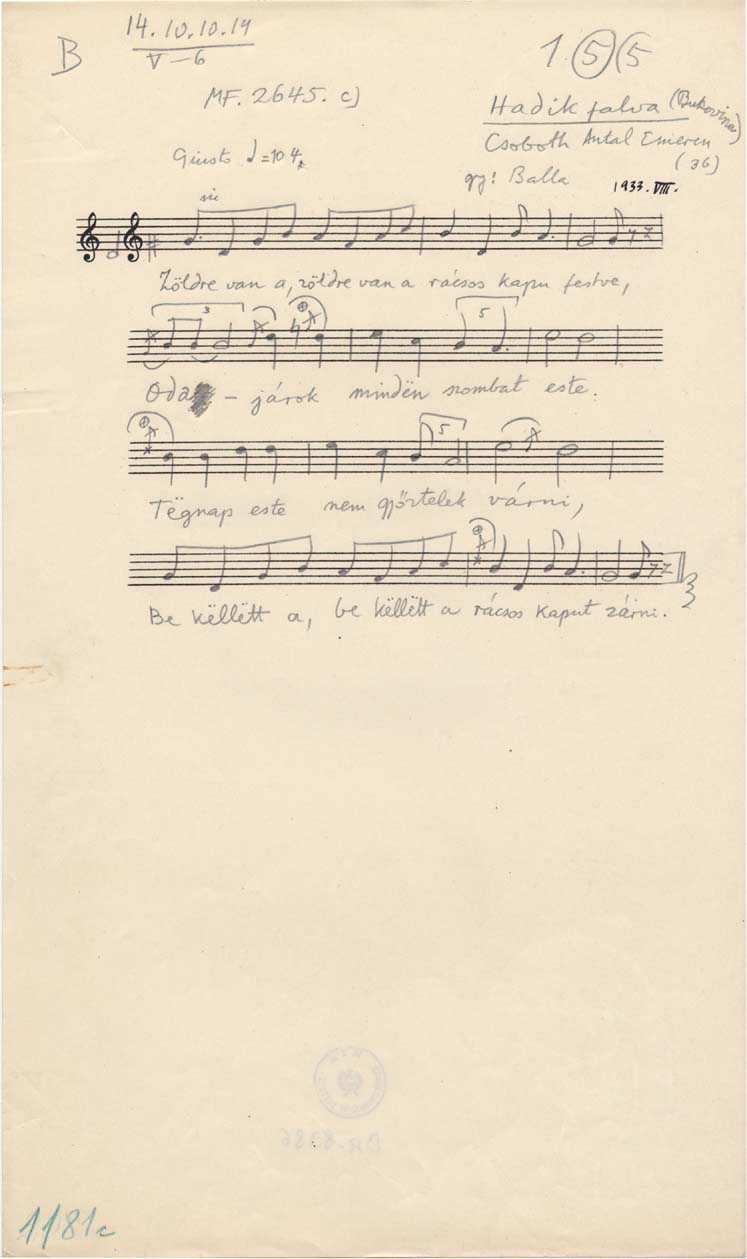 B
14. 10. 10. 14
V – 6
1 (5) (5
MF. 2645. c)
Hadikfalva (Bukovina)
Csoboth Antal Emeren
(36)
Giusto = 104
gy: Balla 1933. VIII.
Zöldre van a, zöldre van a rácsos kapu festve,
3
5
Oda – járok mindën szombat este.
5
Tëgnap este nem győztelek várni,
Be këllëtt a, be këllëtt a rácsos kaput zárni.
BR-8386
1181c